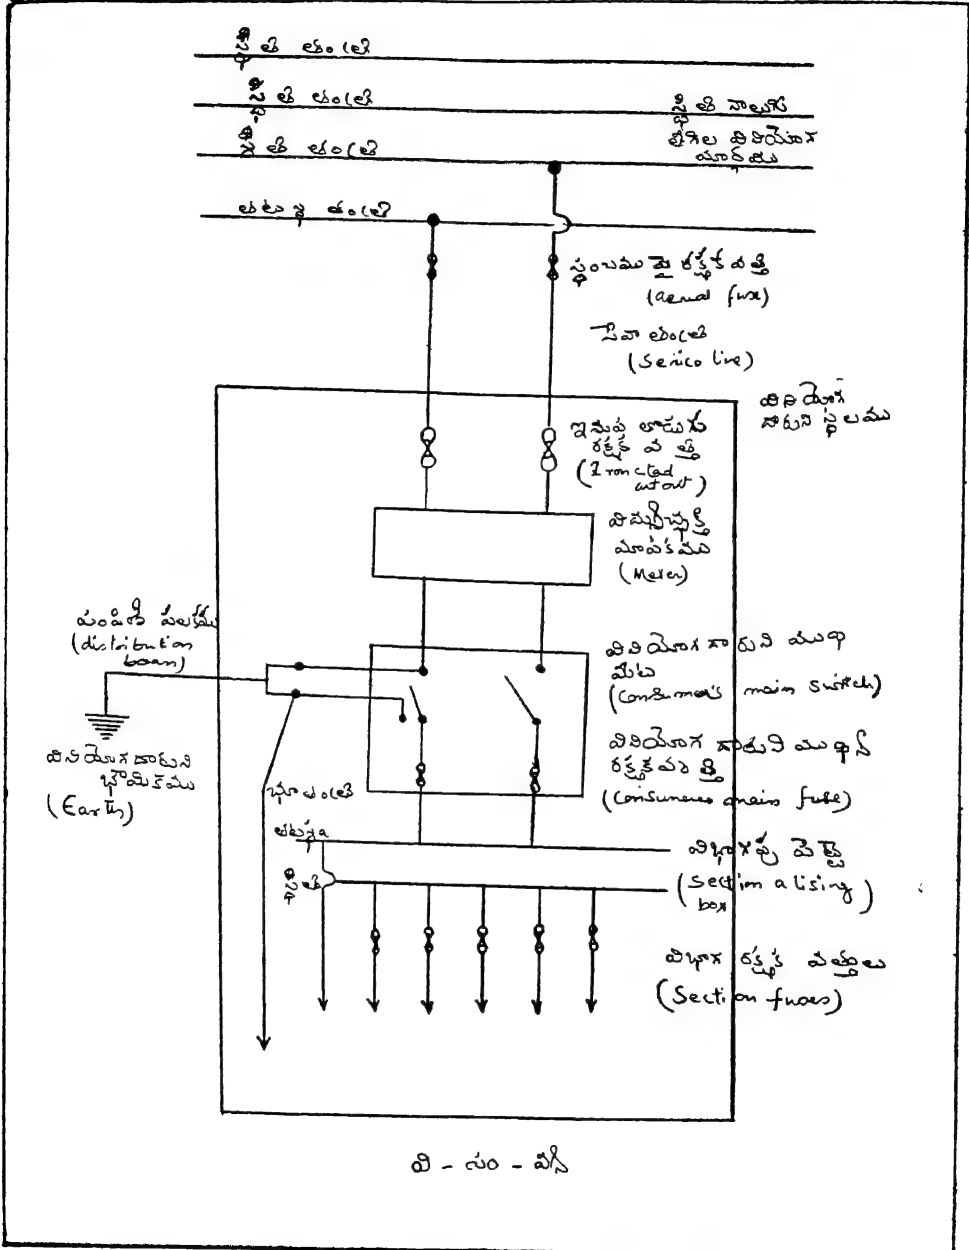 తి తంత్రి
తి తంత్రి
తి తంత్రి
తటస్థ తంత్రి
స్థితి నాలుగు
తీగల వినియోగ
మార్గము
స్థంబము పై రక్షక వత్తి
(aerial fuse)
సేవా తంత్రి
(Service line)
వినియోగ
దారుని స్థలము
ఇనుప తొడుగు
రక్షక వత్తి
(Iron clad
cutout)
మాపకము
(Meter)
పంపిణీ ఫలకము
(distribution
board)
వినియోగదారుని ముఖ్య
మీట
(Consumer's main switch)
వినియోగదారుని
భౌమికము
(Earth)
వినియోగ దారుని ముఖ్య
రక్షకవత్తి
(Consumers main fuse)
భూతంత్రి
తటస్థ
విభాగపు పెట్టె
(Sectionalising
box)
విభాగ రక్షక వత్తులు
(Section fuses)